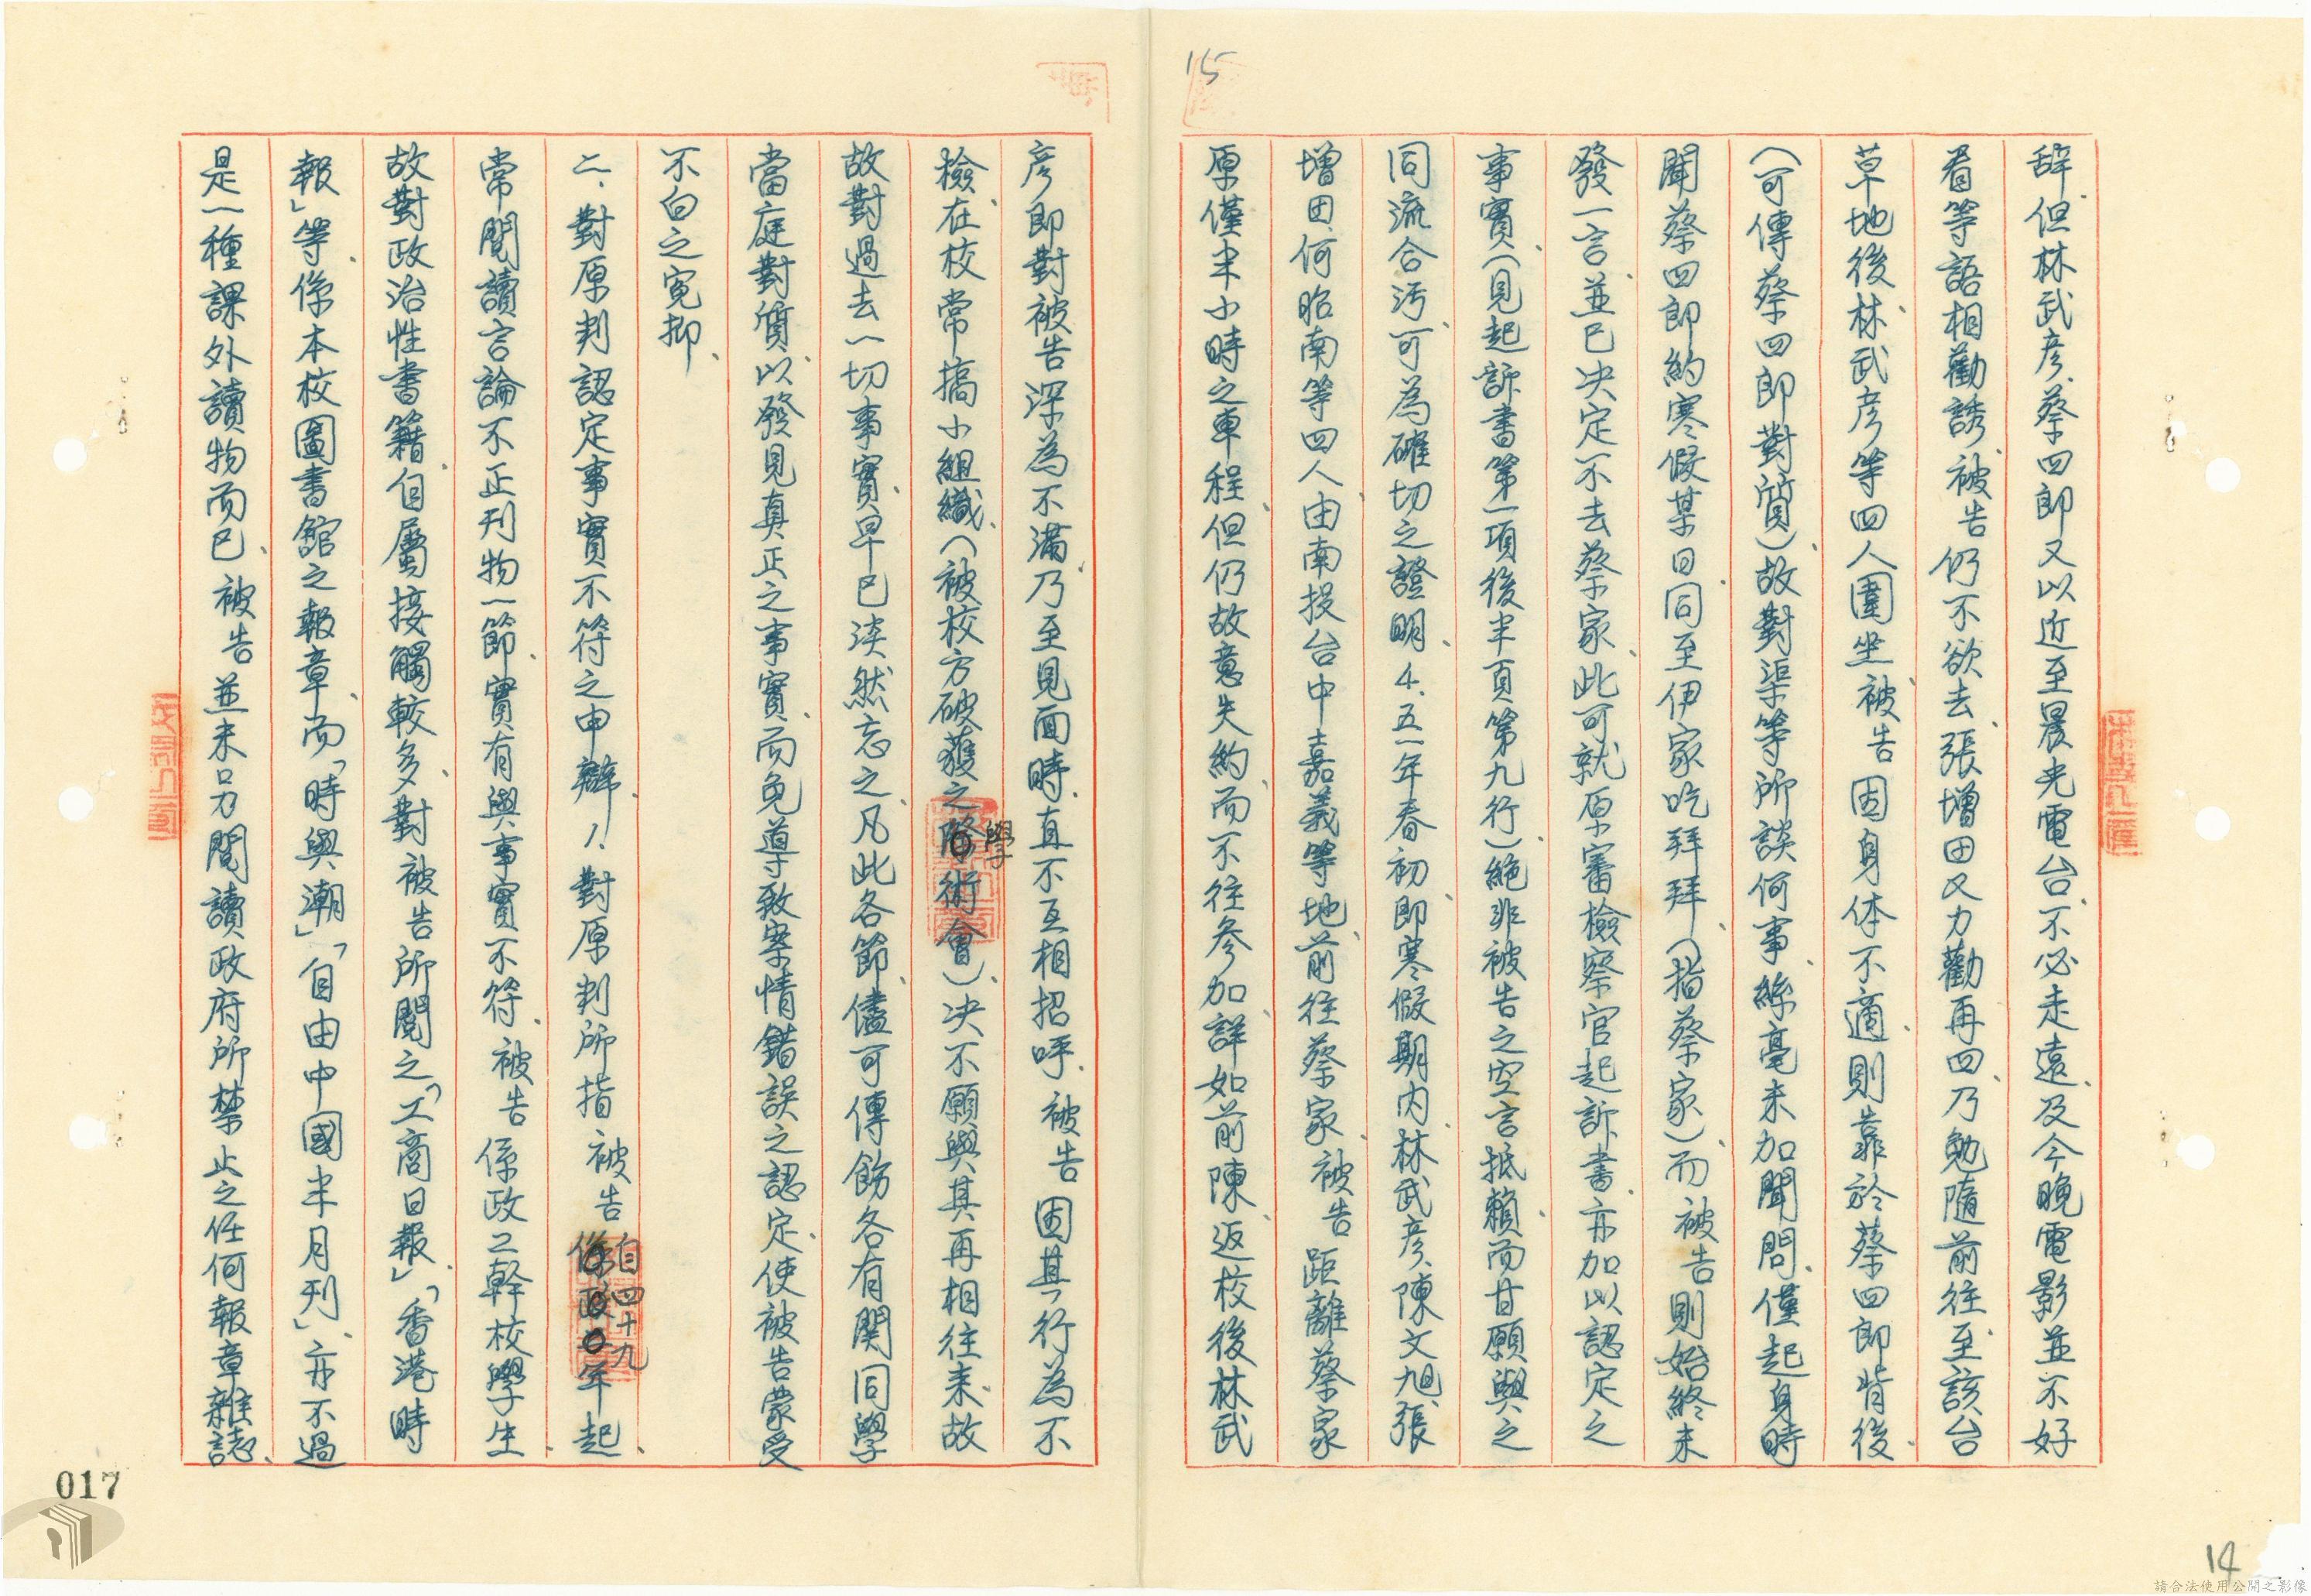 15
辞、但林武彥、蔡四郎又以近至晨光電台、不必走遠、及今晚電影並不好
看等語相勸誘、被告仍不欲去、張增田又力勸再四、乃勉隨前往、至該台
草地後、林武彥等四人圍坐、被告因身体不適、則靠於蔡四郎背後、
(可傳蔡四郎對質)故對渠等所談何事、絲毫未加聞問、僅起身時
聞蔡四郎約寒假某日同至伊家吃拜拜、(指蔡家)、而被告則始終未
發一言、並已決定不去蔡家、此可就原審檢察官起訴書亦加以認定之
事實、(見起訴書第一項後半頁第九行)絕非被告之空言抵賴、而甘願與之
同流合污、可為確切之證明、4.五一年春初、即寒假期內、林武彥、陳文旭、張
增田、何昭南等四人由南投台中嘉義等地、前往蔡家、被告距離蔡家
原僅半小時之車程、但仍故意失約、而不往參加詳如前陳、返校後林武
彥即對被告深為不滿、乃至見面時、直不互相招呼、被告因其行為不
檢、在校常搞小組織、(被校方破獲之學術會)決不願與其再相往來、故
故對過去一切事實、早已淡然忘之、凡此各節、儘可傳飭各有関同學
當庭對質、以發見真正之事實、而免導致案情錯誤之認定、使被告蒙受
不白之寃抑、
二、對原判認定事實不符之申辯、1.對原判所指被告自四十九年起、
常閱讀言論不正刊物一節、實有與事實不符、被告係政工幹校學生
故對政治性書籍自屬接觸較多、對被告所閱之「工商日報」「香港時
報」等、係本校圖書館之報章、而「時與潮」「自由中國半月刊」、亦不過
是一種課外讀物而已、被告並未另閱讀政府所禁止之任何報章雜誌、
017
14
請合法使用公開之影像